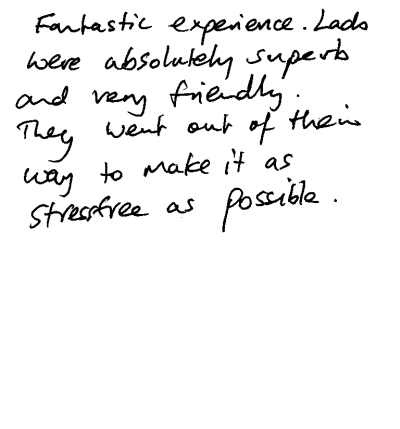 Fantastic experience. Lads
were absolutely superb
and very friendly.
They went out of their
way to make it as
stressfree as possible.